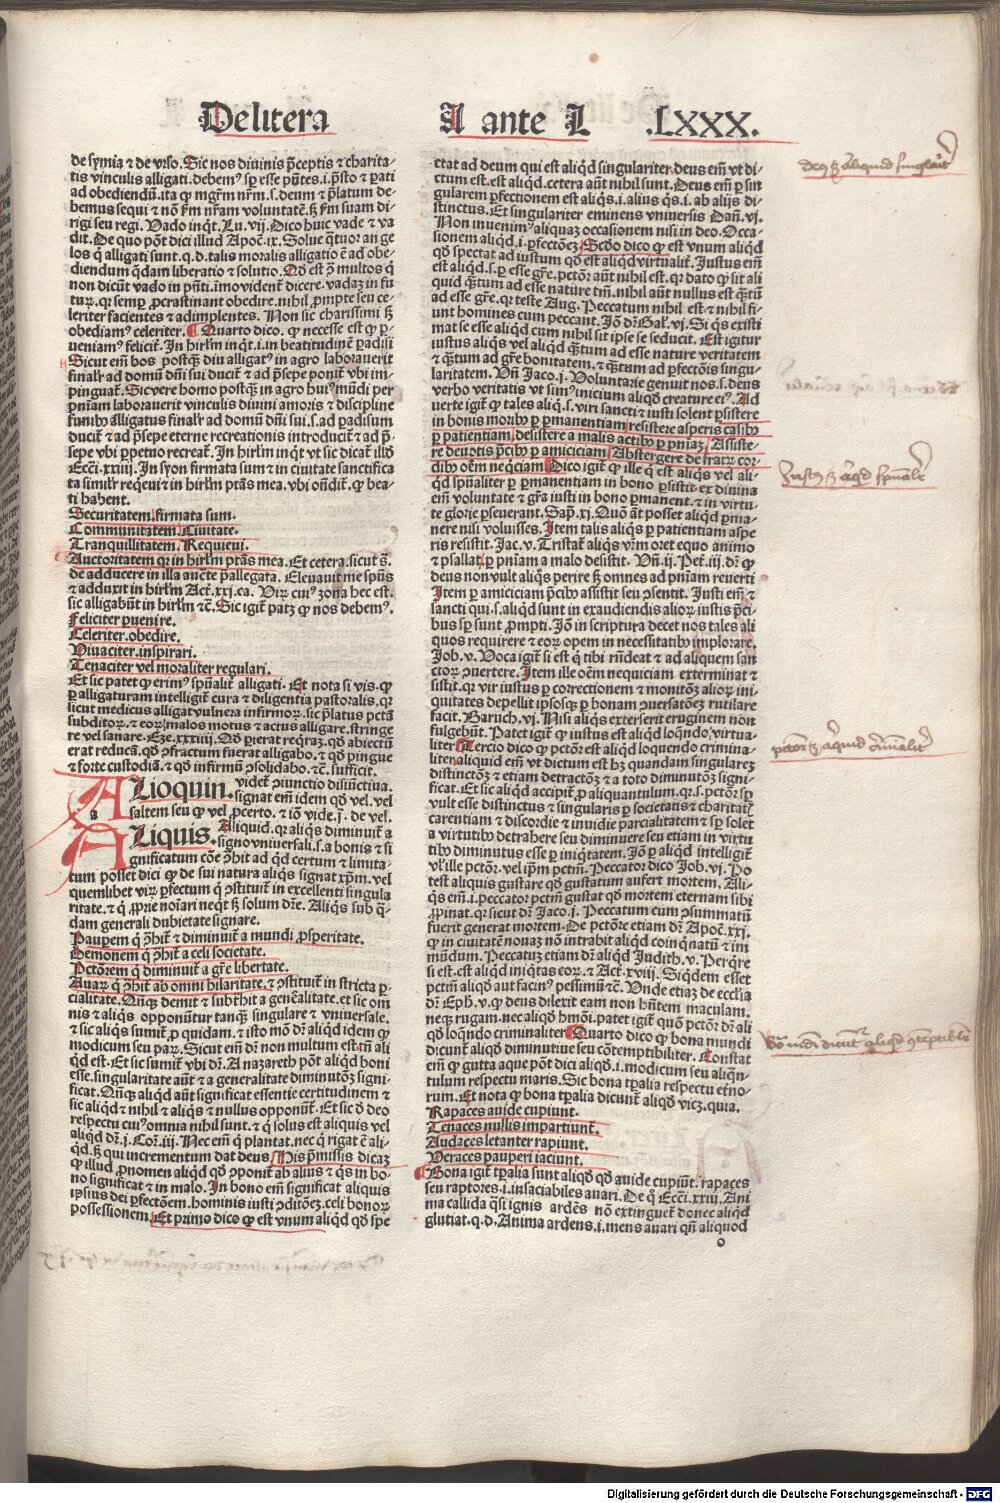 De litera
A ante L .LXXX.
de symia ⁊ de vrso. Sic nos diuinis p̄ceptis ⁊ charita-
tis vinculis alligati. debemꝰ sp̄ esse p̄ntes. i. p̄sto ⁊ p̄ati
ad obediendū. ita ꝙ mgr̄m nr̄m. s. deum ⁊ p̄latum de-
bemus sequi ⁊ nō ẜm nr̄am voluntatē. sꝫ ẜm suam di-
rigi seu regi. Vado inqͥt. Lu. vij. Dico huic vade ⁊ va
dit. De quo pōt dici illud Apoc̄. ix. Solue qͣtuor an ge
los qͥ alligati sunt. q. d. talis moralis alligatio ē ad obe-
diendum qͥdam liberatio ⁊ solutio. Qd est ↄ̄ multos qͥ
non dicūt vado in p̄nti. imo vident̄ dicere. vadaꝫ in fu
turꝝ. qꝛ semꝑ ꝓcrastinant obedire. nihil ꝓmpte seu ce-
leriter facientes ⁊ adimplentes. Non sic charissimi sꝫ
obediamꝰ celeriter. Quarto dico. ꝙ necesse est ꝙ ꝑ-
ueniamꝰ feliciter. In hirl̄m inqͥt. i. in beatitudinē padisi
Sicut em̄ bos postqͣꝫ diu alligatꝰ in agro laborauerit
finalr̄ ad domū dn̄i sui ducit̄ ⁊ ad p̄sepe ponit̄ vbi im-
pinguat̄. Sic vere homo postqͣꝫ in agro huiꝰ mūdi per
pn̄iam laborauerit vinculis diuini amoris ⁊ discipline
funibꝰ alligatus finalr̄ ad domū dn̄i sui. s. ad padisum
ducit̄ ⁊ ad p̄sepe eterne recreationis introducit̄ ⁊ ad p̄-
sepe vbi ꝑpetuo recreat̄. In hirl̄m inqͥt vt sic dicat̄ illd̄
Ecc̄i. xxiiij. In syon firmata sum ⁊ in ciuitate sanctifica
ta simil'r reqͥeui ⁊ in hirl̄m ptās mea. vbi on̄dit̄. ꝙ bea-
ti habent.
Securitatem. firmata sum.
Communitatem. Ciuitate.
Tranquillitatem. Requieui.
Auctoritatem qꝛ in hirl̄m ptās mea. Et cetera. sicut s̄.
de adducere in illa auct̄e p̄allegata. Eleuauit me spūs
⁊ adduxit in hirl̄m Act̄. xxj. ca. Virꝝ cuiꝰ zona hec est.
sic alligabūt in hirl̄m ⁊c̄. Sic igit̄ patꝫ ꝙ nos debemꝰ.
Feliciter ꝑuenire.
Celeriter. obedire.
Viuaciter. inspirari.
Tenaciter vel moraliter regulari.
Et sic patet ꝙ erimꝰ spūalit̄ alligati. Et nota si vis. ꝙ
ꝑ alligaturam intelligit̄ cura ⁊ diligentia pastoralis. qꝛ
sicut medicus alligat vulnera infirmoꝝ. sic p̄latus pctā
subditoꝝ. ⁊ eoꝝ malos motus ⁊ actus alligare. stringe
re vel sanare. Eze. xxxiiij. Qd̄ ꝑierat reqͥraꝫ. qd̄ abiectū
erat reducā. qd̄ ↄfractum fuerat alligabo. ⁊ qd̄ pingue
⁊ forte custodiā. ⁊ qd̄ infirmū ↄsolidabo. ⁊c̄. sufficit.
ALioquin. videt̄ ↄiunctio disiūctiua.
signat em̄ idem qd̄ vel. vel
a
saltem seu ꝙ vel ꝓcerto. ⁊ iō vide. j. de vel.
ALiquis. Aliquid. qꝛ aliqͥs diminuit̄ a
signo vniuersali. s. a bonis ⁊ si
gnificatum cōe ↄ̄hit̄ ad qd̄ certum ⁊ limita-
tum posset dici ꝙ de sui natura aliqͥs signat xp̄m. vel
quemlibet virꝝ ꝑfectum qͥ ↄstituit̄ in excellenti singula
ritate. ⁊ qͥ ꝓprie noīari neqͥt sꝫ solum dr̄e. Aliqͥs sub qͣ-
dam generali dubietate signare.
Pauꝑem qͥ ↄ̄hit̄ ⁊ diminuit̄ a mundi ꝓsperitate.
Demonem qͥ ↄ̄hit̄ a celi societate.
Pctōrem qͥ diminuit̄ a gr̄e libertate.
Auaꝝ qͥ ↄ̄hit̄ ab omni hilaritate. ⁊ ↄstituit̄ in stricta p̄r
cialitate. Aliqͥs demit̄ ⁊ subtͣhit̄ a gen̄alitate. et sic om
nis ⁊ aliqͥs opponūtur tanqͣꝫ singulare ⁊ vniuersale.
⁊ sic aliqͥs sumit̄ ꝓ quidam. ⁊ isto mō dr̄ aliqd̄ idem ꝙ
modicum seu paꝝ. Sicut em̄ dr̄ non multum est. tn̄ ali
qd̄ est. Et sic sumit̄ vbi dr̄. A nazareth pōt aliqd̄ boni
esse. singularitate aūt ⁊ a generalitate diminutōꝫ signi-
ficat. Aliqͥs aliqd̄ aūt significat essentie certitudinem ⁊
sic aliqd̄ ⁊ nihil ⁊ aliqͥs ⁊ nullus opponūt̄. Et sic d̄ deo
respectu cuiꝰ omnia nihil sunt. ⁊ qͥ solus est aliquis vel
aliqd̄ dr̄. j. Coꝝ. iij. Nec em̄ qͥ plantat. nec qͥ rigat ē ali-
qd̄. sꝫ qui incrementum dat deus. His p̄missis dicaꝫ
ꝙ illud ꝓnomen aliqd̄ qd̄ ↄponit̄ ab alius ⁊ qͥs in bo-
no significat ⁊ in malo. In bono em̄ significat aliquis
ip̄sius dei ꝑfectōem. hominis iusti ↄditōeꝫ. celi honoꝝ
possessionem. Et primo dico ꝙ est vnum aliqd̄ qd̄ spe
ctat ad deum qui est aliqd̄ singulariter. deus em̄ vt di-
ctum est. est aliqd̄. cetera aūt nihil sunt. Deus em̄ ꝑ sin
gularem ꝑfectionem est aliqͥs. i. alius qͥs. i. ab alijs di-
stinctus. Et singulariter eminens vniuersis Dan̄. vj.
Non inuenimꝰ aliquaꝫ occasionem nisi in deo. Occa-
sionem aliqd̄. i. ꝑfectōeꝫ. Scd̄o dico ꝙ est vnum aliqd̄
qd̄ spectat ad iustum qd̄ est aliqd̄ virtualit̄. Iustus em̄
est aliqd̄. s. ꝑ esse gr̄e. pctōr aūt nihil est. qꝛ dato ꝙ sit ali
quid qͣntum ad esse nature tn̄. nihil aūt nullus est qͣntū
ad esse gr̄e. qꝛ teste Aug. Peccatum nihil est ⁊ nihil fi-
unt homines cum peccant. Iō dr̄ Gal'. vj. Si qͥs existi
mat se esse aliqd̄ cum nihil sit ip̄se se seducit. Est igitur
iustus aliqͥs vel aliqd̄ qͣntum ad esse nature veritatem
⁊ qͣntum ad gr̄e bonitatem. ⁊ qͣntum ad ꝑfectōis singu-
laritatem. Vn̄ Jaco. j. Voluntarie genuit nos. s. deus
verbo veritatis vt simꝰ inicium aliqd̄ creature eiꝰ. Ad
uerte igit̄ ꝙ tales aliqͥ. s. viri sancti ⁊ iusti solent ꝑsistere
in bonis moribꝰ ꝑ ꝑmanentiam resistere asperis casibꝰ
ꝑ patientiam, desistere a malis actibꝰ ꝑ pn̄iaꝫ, Assiste-
re deuotis p̄cibꝰ ꝑ amiciciam, Abstergere de fratꝝ cor-
dibꝰ oēm neqͥciam Dico igit̄ ꝙ ille qͥ est aliqͥs vel ali-
qd̄ spūaliter ꝑ ꝑmanentiam in bono ꝑsistit. ex diuina
em̄ voluntate ⁊ gr̄a iusti in bono ꝑmanent. ⁊ in virtu-
te glorie ꝑseuerant. Sap̄. xj. Quō āt posset aliqd̄ ꝑma-
nere nisi voluisses. Item talis aliqͥs ꝑ patientiam aspe
ris resistit. Jac. v. Tristat̄ aliqͥs vr̄m oret equo animo
⁊ psallat. ꝑ pn̄iam a malo desistit. Vn̄. ij. Pet̄. iij. dr̄ ꝙ
deus non vult aliqͥs perire sꝫ omnes ad pn̄iam reuerti
Item ꝑ amiciciam p̄cibꝰ assistit seu ↄsentit. Iusti em̄ ⁊
sancti qui. s. aliqd̄ sunt in exaudiendis alioꝝ iustis p̄ci-
bus sp̄ sunt ꝓmpti. Iō in scriptura decet nos tales ali
quos requirere ⁊ eoꝝ opem in necessitatibꝰ implorare.
Job. v. Voca igit̄ si est qͥ tibi rn̄deat ⁊ ad aliquem san
ctoꝝ ↄuertere. Item ille oēm nequiciam exterminat ⁊
sistit. qꝛ vir iustus ꝑ correctionem ⁊ monitōꝫ alioꝝ ini-
quitates depellit ip̄sosqꝫ ꝑ bonam ↄuersatōeꝫ rutilare
facit. Baruch. vj. Nisi aliqͥs exterserit eruginem non
fulgebūt. Patet igit̄ ꝙ iustus est aliqd̄ loqͣndo, virtua-
liter. Tercio dico ꝙ pctōr est aliqd̄ loquendo crimina-
liter. aliquid em̄ vt dictum est hꝫ quandam singulareꝫ
distinctōꝫ ⁊ etiam detractōꝫ ⁊ a toto diminutōꝫ signi-
ficat. Et sic aliqd̄ accipit̄. ꝓ aliquantulum. qꝛ. s. pctōr sp̄
vult esse distinctus ⁊ singularis ꝑ societatis ⁊ charitatꝭ
carentiam ⁊ discordie ⁊ inuidie parcialitatem ⁊ sp̄ solet
a virtutibꝰ detrahere seu diminuere seu etiam in virtu
tibꝰ diminutus esse ꝑ iniqͥtatem. Iō ꝑ aliqd̄ intelligit̄
vl' ille pctōr. vel ip̄m pctm̄. Peccator dico Job. vj. Po
test aliquis gustare qd̄ gustatum aufert mortem. Ali-
qͥs em̄. i. peccator pctm̄ gustat qd̄ mortem eternam sibi
ꝓpinat. qꝛ sicut dr̄ Jaco. j. Peccatum cum ↄsummatū
fuerit generat mortem. De pctōre etiam dr̄ Apoc̄. xxj.
ꝙ in ciuitatē nouaꝫ nō intrabit aliqd̄ coinqͥnatū ⁊ im
mūdum. Peccatuꝫ etiam dr̄ aliqd̄ Judith. v. Perqͥre
si est. est aliqd̄ iniqͥtas eoꝝ. ⁊ Act̄. xviij. Siqͥdem esset
pctm̄ aliqd̄ aut facinꝰ pessimū ⁊c̄. Vnde etiaꝫ de eccl̄ia
dr̄ Eph̄. v. ꝙ deus dilexit eam non hn̄tem maculam.
neqꝫ rugam. nec aliqd̄ hmōi. patet igit̄ quō pctōr dr̄ ali
qd̄ loqͣndo criminaliter Quarto dico ꝙ bona mundi
dicunt̄ aliqd̄ diminutiue seu cōtemptibiliter. Constat
em̄ ꝙ gutta aque pōt dici aliqd̄. i. modicum seu aliqͣn-
tulum respectu maris. Sic bona tꝑalia respectu et̄no-
rum. Et nota ꝙ bona tꝑalia dicunt̄ aliqd̄ viczꝫ. quia.
Rapaces auide cupiunt.
Tenaces nullis impartiunt̄.
Audaces letanter rapiunt.
Veraces pauperi iaciunt.
Bona igit̄ tꝑalia sunt aliqd̄ qd̄ auide cupiūt. rapaces
seu raptores. i. insaciabiles auari. De qͥ Ecc̄i. xxiij. Ani
ma callida qͣsi ignis ardēs nō extinguet̄ donec aliqd̄
glutiat. q. d. Anima ardens. i. mens auari qn̄ aliquod
o